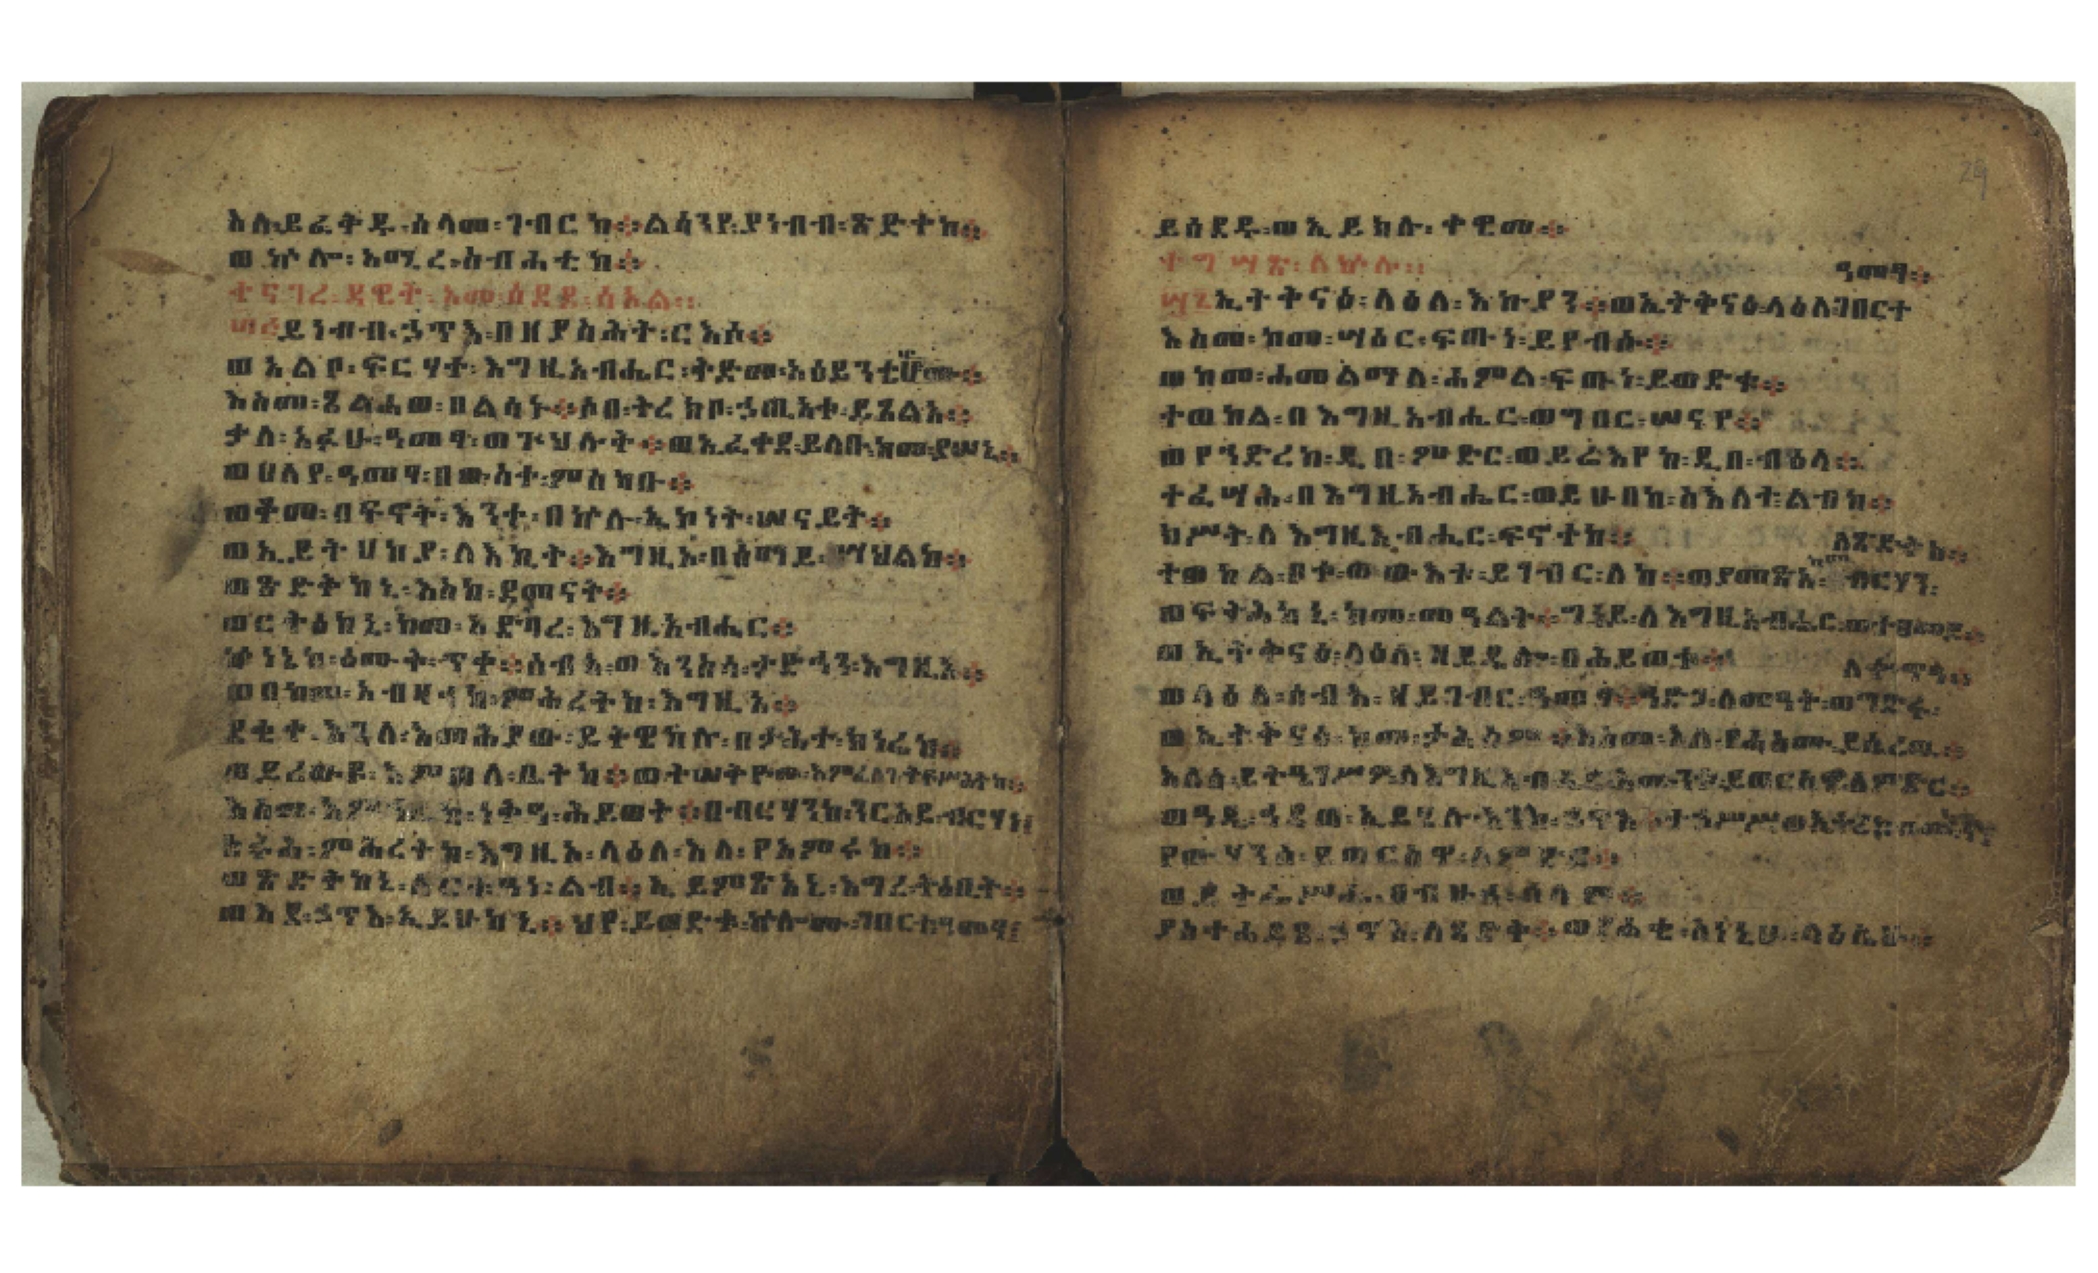 እለ፡ይፈቅዱ፡ሰላመ፡ገብርከ።ልሳንየ፡ያነብብ፡ጽድቀከ።
ወኵሎ፡አሚረ፡ስብሐቲከ።
ተናገረ፡ዳዊት፡አመ፡ሰደደ፡ሳኦል።
ይነብብ፡ኃጥእ፡በዘያስሕት፡ርእሶ።
ወአልቦ፡ፍርሃተ፡እግዚአብሔር፡ቅድመ፡አዕይንቲሆሙ።
እስመ፡ጸልሐወ፡በልሳኑ።ሶበ፡ትረክቦ፡ኃጢአቱ፡ይጸልእ።
ቃለ፡አፉሁ፡ዓመፃ፡ወጕህሉት።ወኢፈቀደ፡ይለቡ፡ከመ፡ያሠኒ።
ወሀለየ፡ዓመፃ፡በውስተ፡ምስካቡ።
ወቆመ፡በፍኖት፡እንተ፡በኵሉ፡ኢኮነት፡ሠናይት።
ወኢይትሀከያ፡ለእኪት።እግዚኦ፡በሰማይ፡ሣህልከ።
ወጽድቅከኒ፡እስከ፡ደመናት።
ወርትዕከኒ፡ከመ፡አድባረ፡እግዚአብሔር።
ኵነኔከ፡ዕሙቅ፡ጥቀ።ሰብአ፡ወእንስሳ፡ታድኅን፡እግዚኦ።
ወበከመ፡አብዛኅከ፡ምሕረተከ፡እግዚኦ።
ደቂቀ፡እጓለ፡እመሕያው፡ይትዌከሉ፡በታሕተ፡ክነፊከ።
ወይረውዩ፡እምጠለ፡ቤትከ።
እስመ፡እምኀቤከ፡ነቅዓ፡ሕይወት።በብርሃንከ፡ንርአይ፡ብርሃነ።
ስፋሕ፡ምሕረትከ፡እግዚኦ፡ላዕለ፡እለ፡የአምሩከ።
ወጽድቅከኒ፡ለርቱዓነ፡ልብ።ኢይምጽአኒ፡እግረ፡ትዕቢት።
ወእደ፡ኃጥእ፡ኢይሁከኒ።ህየ፡ይወድቁ፡ኵሎሙ፡ገበርተ፡ዓመፃ።
ይሰደዱ፡ወኢይክሉ፡ቀዊመ።
ተግሣጽ፡ለኵሉ።
ዓመፃ።
ኢትቅናዕ፡ላዕለ፡እኩያን።ወኢትቅናዕ፡ላዕለ፡ገበርተ
እስመ፡ከመ፡ሣዕር፡ፍጡነ፡ይየብሱ።
ወከመ፡ሐመልማለ፡ሐምል፡ፍጡነ፡ይወድቁ።
ተወከል፡በእግዚአብሔር፡ወግበር፡ሠናየ።
ወየኀድረከ፡ዲበ፡ምድር፡ወይሬእየከ፡ዲበ፡ብዕላ።
ተፈሣሕ፡በእግዚአብሔር፡ወይሁበከ፡ስእለተ፡ልብከ።
ክሥት፡ለእግዚአብሔር፡ፍኖተከ።
ለጽድቅከ።
ተወከል፡ቦቱ፡ወውእቱ፡ይገብር፡ለከ።ወያመጽኣ፡ከመ፡ብርሃን፡
ወፍትሕከኒ፡ከመ፡መዓልት።ግነይ፡ለእግዚአብሔር፡ወተቀነይ።
ወኢትቅናዕ፡ላዕለ፡ዘይዴሎ፡በሕይወቱ።
ለቍጥዓ።
ወላዕለ፡ሰብእ፡ዘይገብር፡ዓመፃ።ኅድጋ፡ለመዓት፡ወግድፋ፡
ወኢትቅናዕ፡ከመ፡ታሕስም።እስመ፡እለ፡የሐስሙ፡ይሤረዉ።
እለሰ፡ይትዔገሥዎ፡ለእግዚአብሔር፡እሙንቱ፡ይወርስዋ፡ለምድር።
የዋሃንሰ፡ይወርስዋ፡ለምድር።
ያስተሐይጽ፡ኃጥእ፡ለጻድቅ።ወየሐቂ፡ስነኒሁ፡ላዕሌሁ።